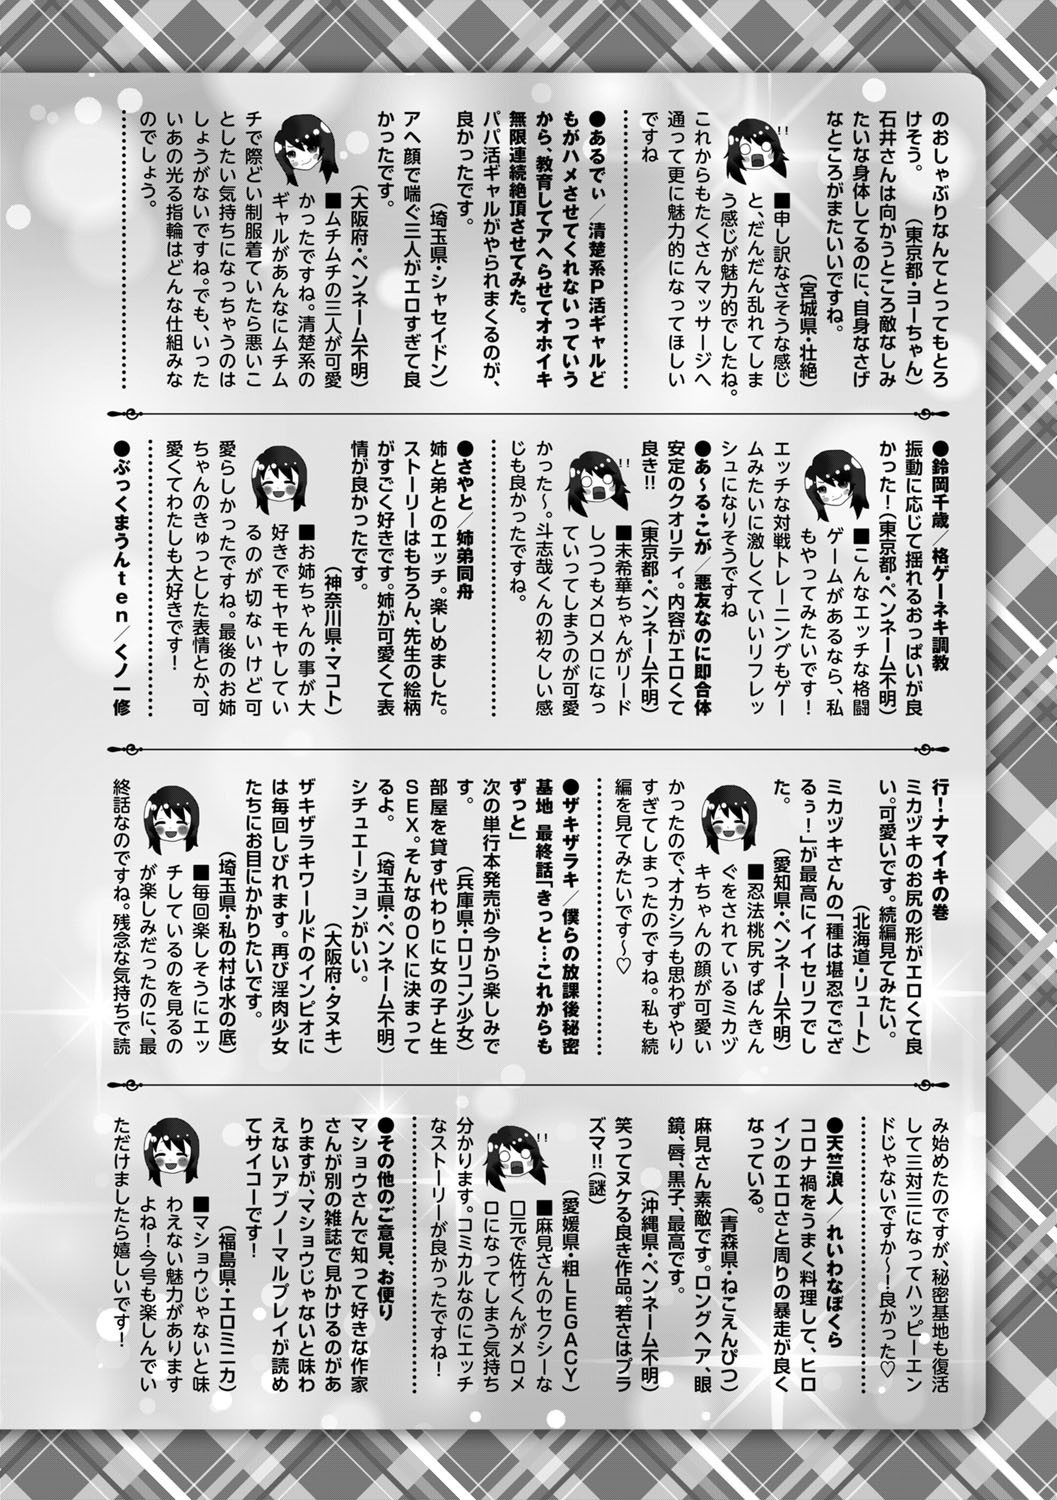 のおしゃぶりなんてとってもとろ
けそう。（東京都・ヨーちゃん）
石井さんは向かうところ敵なしみ
たいな身体してるのに、自身なさげ
なところがまたいいですね。
（宮城県・壮絶）
■申し訳なさそうな感じ
と、だんだん乱れてしま
う感じが魅力的でしたね。
これからもたくさんマッサージへ
通って更に魅力的になってほしい
ですね
●あるでぃ／清楚系Ｐ活ギャルど
もがハメさせてくれないっていう
から、教育してアヘらせてオホイキ
無限連続絶頂させてみた。
パパ活ギャルがやられまくるのが、
良かったです。
（埼玉県・シャセイドン）
アヘ顔で喘ぐ三人がエロすぎて良
かったです。
（大阪府・ペンネーム不明）
■ムチムチの三人が可愛
かったですね。清楚系の
ギャルがあんなにムチム
チで際どい制服着ていたら悪いこ
としたい気持ちになっちゃうのは
しょうがないですね。でも、いった
いあの光る指輪はどんな仕組みな
のでしょう。
●鈴岡千歳／格ゲーネキ調教
振動に応じて揺れるおっぱいが良
かった！（東京都・ペンネーム不明）
■こんなエッチな格闘
ゲームがあるなら、私
もやってみたいです！
エッチな対戦トレーニングもゲー
ムみたいに激しくていいリフレッ
シュになりそうですね
●あ〜る・こが／悪友なのに即合体
安定のクオリティ。内容がエロくて
良き!!（東京都・ペンネーム不明）
■未希華ちゃんがリード
しつつもメロメロになっ
ていってしまうのが可愛
かった〜。斗志哉くんの初々しい感
じも良かったですね。
●さやと／姉弟同舟
姉と弟とのエッチ。楽しめました。
ストーリーはもちろん、先生の絵柄
がすごく好きです。姉が可愛くて表
情が良かったです。
（神奈川県・マコト）
■お姉ちゃんの事が大
好きでモヤモヤしてい
るのが切ないけど可
愛らしかったですね。最後のお姉
ちゃんのきゅっとした表情とか、可
愛くてわたしも大好きです！
●ぶっくまうんｔｅｎ／くノ一修
行！ナマイキの巻
ミカヅキのお尻の形がエロくて良
い。可愛いです。続編見てみたい。
（北海道・リュート）
ミカヅキさんの「種は堪忍でござ
るぅ！」が最高にイイセリフでし
た。（愛知県・ペンネーム不明）
■忍法桃尻すぱんきん
ぐをされているミカヅ
キちゃんの顔が可愛い
かったので、オカシラも思わずやり
すぎてしまったのですね。私も続
編を見てみたいです〜♡
●天竺浪人／れいわなぼくら
コロナ禍をうまく料理して、ヒロ
インのエロさと周りの暴走が良く
なっている。
（青森県・ねこえんぴつ）
麻見さん素敵です。ロングヘア、眼
鏡、唇、黒子、最高です。
（沖縄県・ペンネーム不明）
笑ってヌケる良き作品。若さはプラ
ズマ!!（謎）
（愛媛県・粗ＬＥＧＡＣＹ）
■麻見さんのセクシーな
口元で佐竹くんがメロメ
ロになってしまう気持ち
分かります。コミカルなのにエッチ
なストーリーが良かったですね！
●その他のご意見、お便り
マショウさんで知って好きな作家
さんが別の雑誌で見かけるのがあ
りますが、マショウじゃないと味わ
えないアブノーマルプレイが読め
てサイコーです！
（福島県・エロミニカ）
■マショウじゃないと味
わえない魅力があります
よね！今号も楽しんでい
ただけましたら嬉しいです！